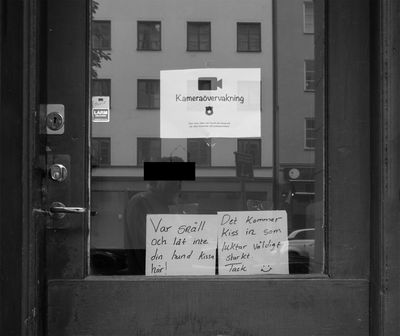 Kameraövervakning
LARM
Var snäll
och låt inte
din hund kissa
här!
Det kommer
kiss in som
luktar väldigt
starkt.
Tack